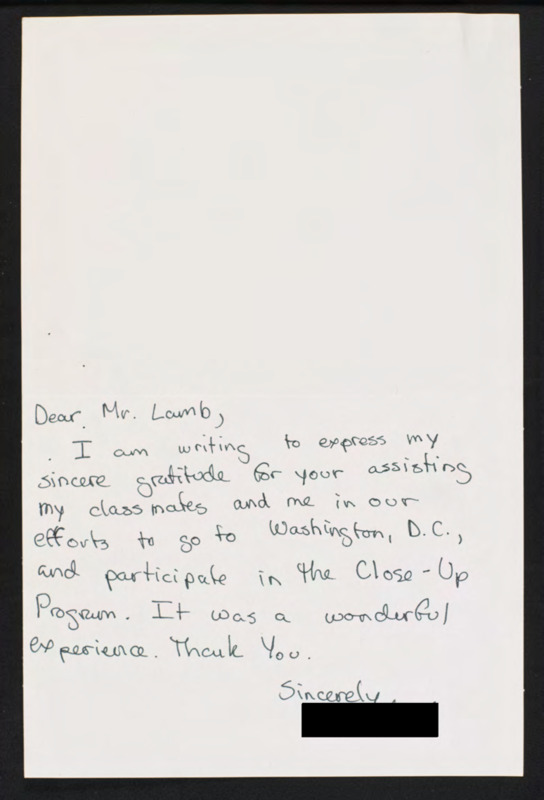 Dear Mr. Lamb,
I am writing to express my
sincere gratitude for your assisting
my classmates and me in our
efforts to go to Washington, D.C.,
and participate in the Close-Up
Program. It was a wonderful
experience. Thank You.
Sincerely,